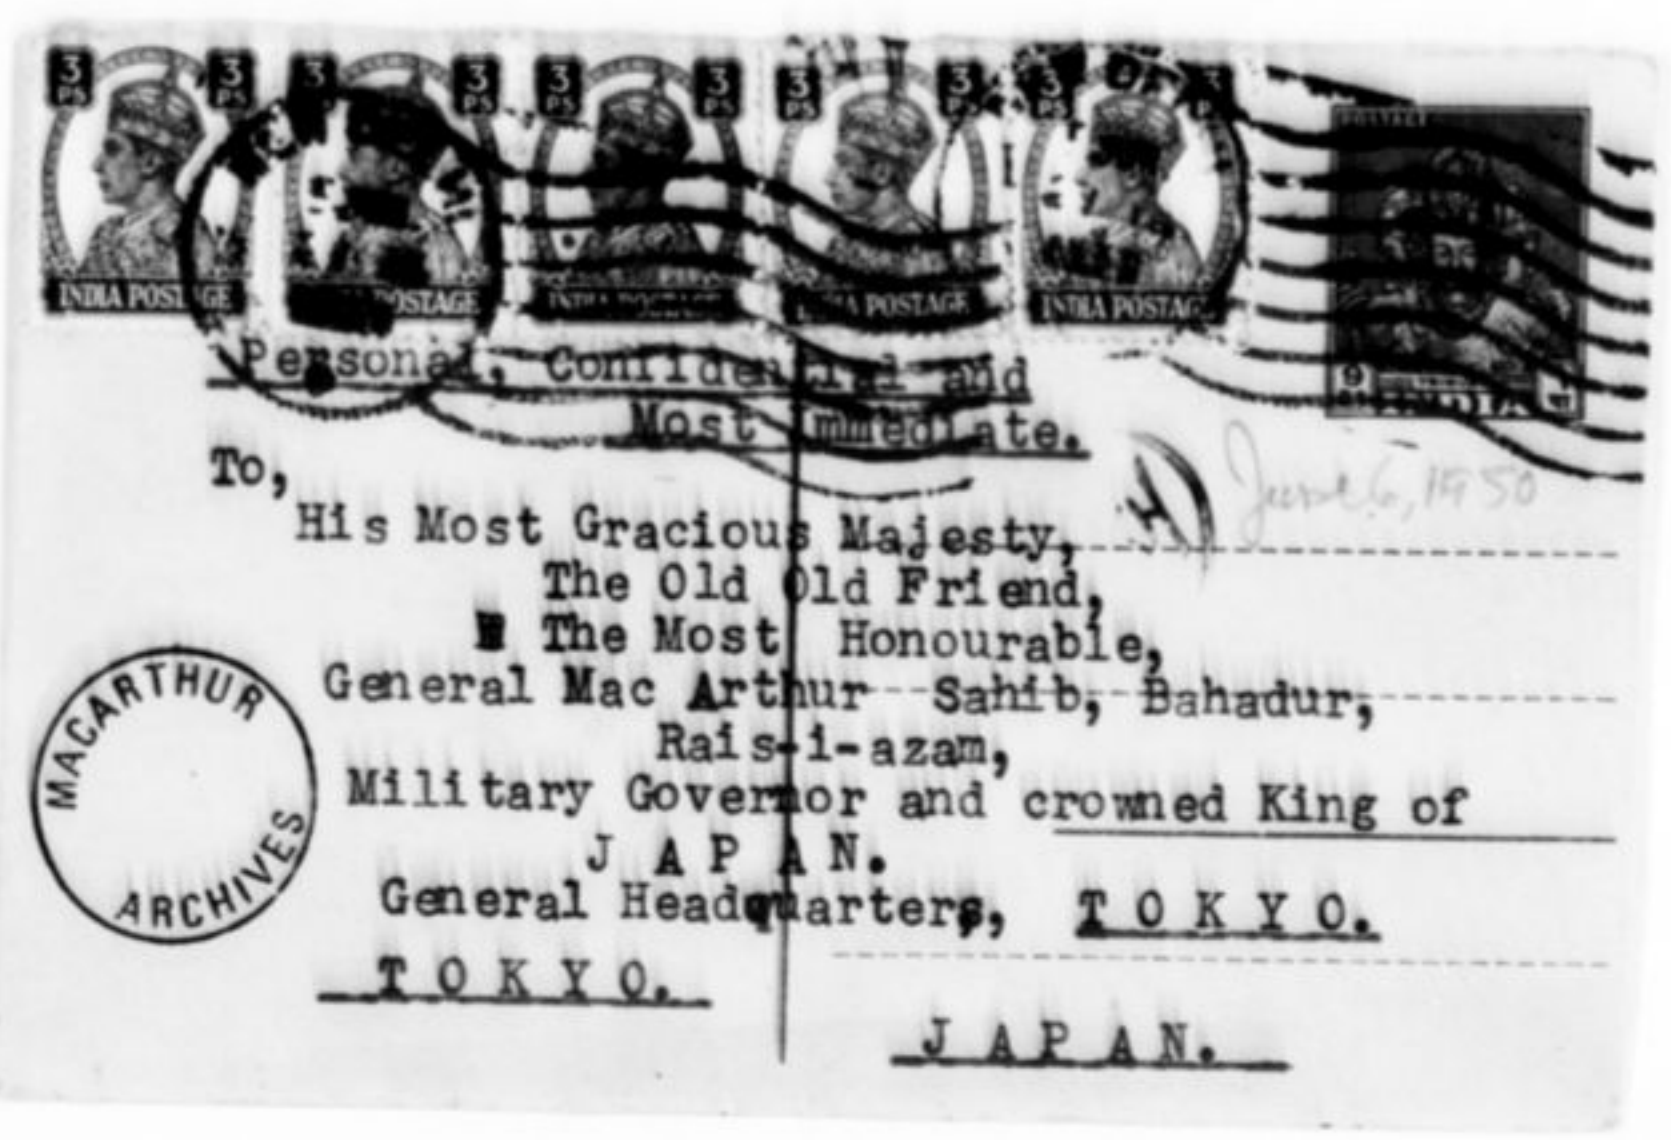 3 PS 3 PS 3 3 PS 3 PS 3 PS 3 PS 3 PS 3 PS
INDIA POSTAGE POSTAGE INDIA POSTAGE POSTAGE INDIA POSTAGE
POSTAGE
9
Personal, Confidential and
Most Immediate.
To,
June 6, 1950
His Most Gracious Majesty,
The Old Old Friend,
The Most Honourable,
General Mac Arthur Sahib, Bahadur,
Rais-i-azam,
Military Governor and crowned King of
J A P A N.
General Headquarters, T O K Y O.
T O K Y O.
J A P A N.
MACARTHUR
ARCHIVES